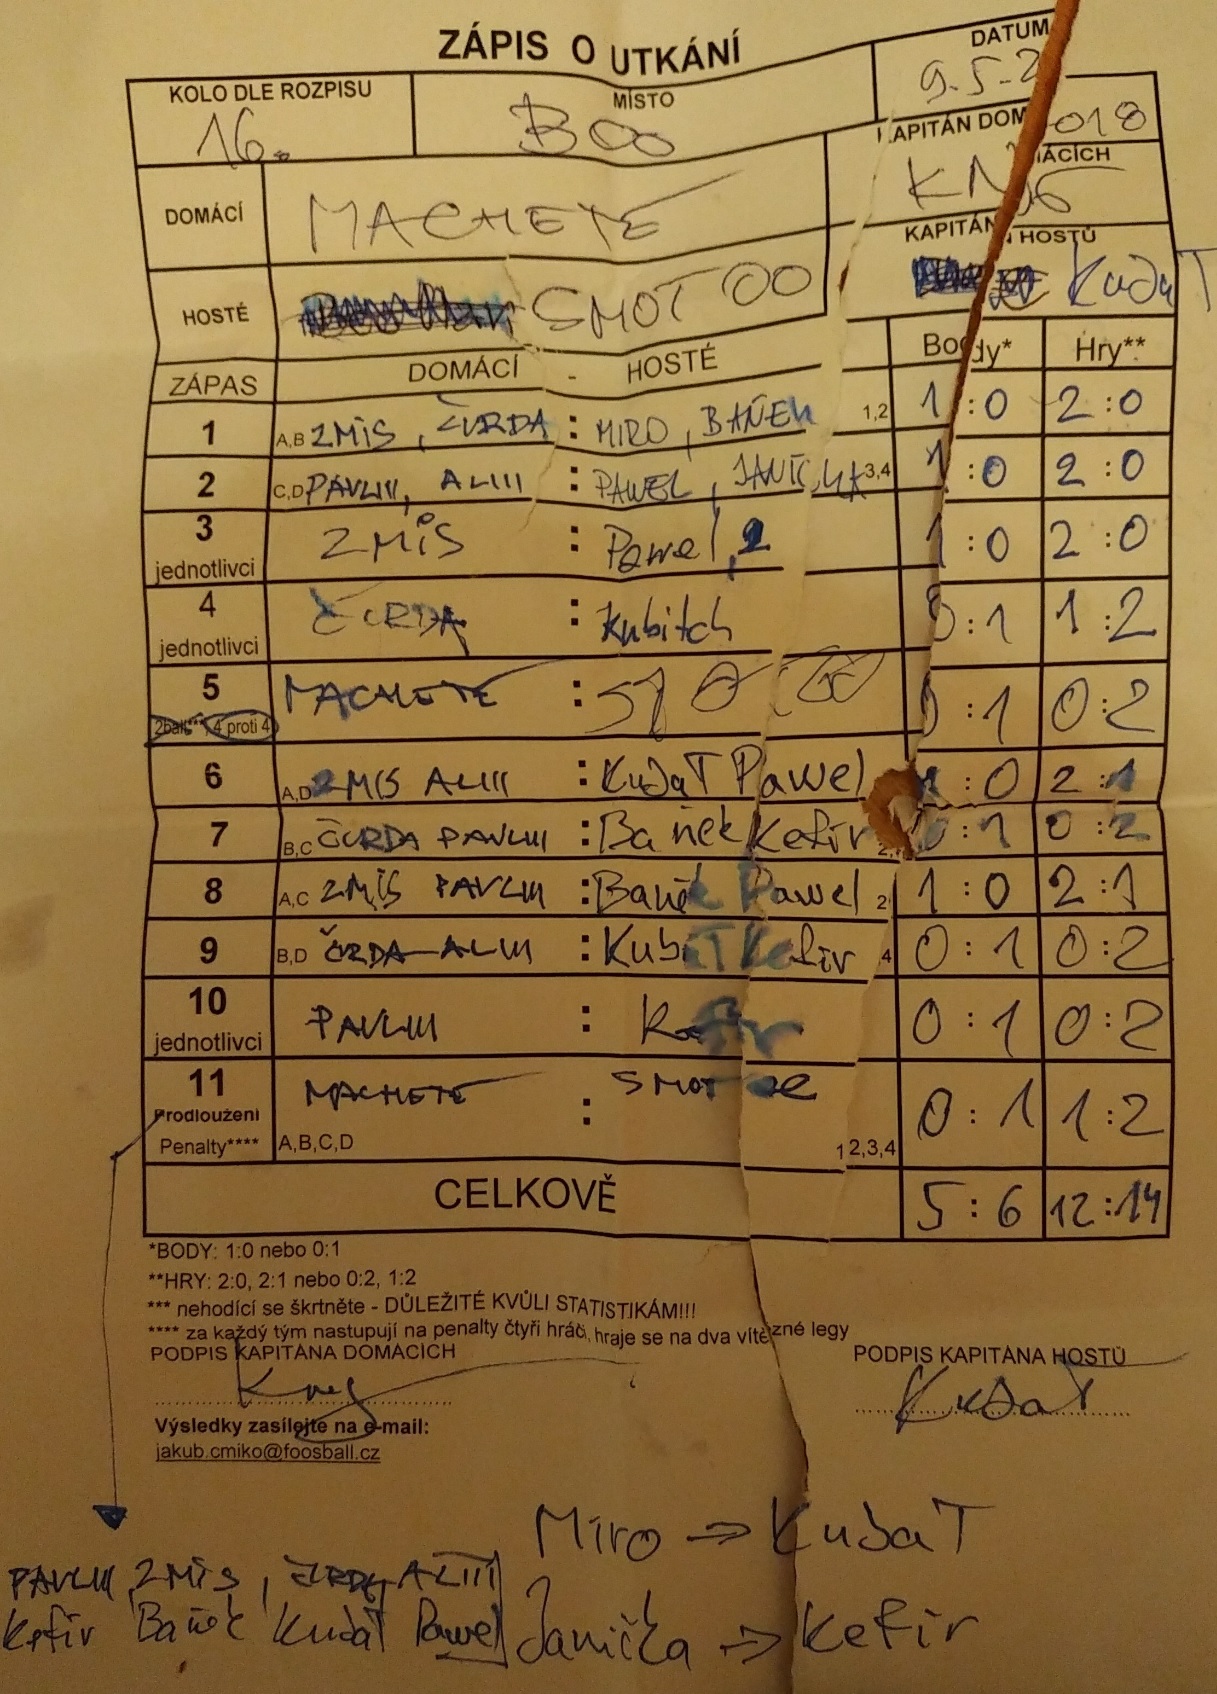 ZÁPIS O UTKÁNÍ
KOLO DLE ROZPISU MÍSTO DATUM
16. Boo 9.5.2018
DOMÁCÍ MACHETE KAPITÁN DOMÁCÍCH
KAPITÁN HOSTŮ
HOSTÉ SMOT OO KubaT
ZÁPAS DOMÁCÍ - HOSTÉ Body* Hry**
1 A,B ZMIS, ČURDA : MIRO, BANĚK 1,2 1:0 2:0
2 C,D PAVLIII, ALIII : PAWEL, JANIČKA 3,4 1:0 2:0
3 jednotlivci ZMIS : Pawel 1:0 2:0
4 jednotlivci ČURDA : Kubitch 0:1 1:2
5 2ball***, 4 proti 4 MACHETE : 0:1 0:2
6 A,D ZMIS ALIII : KubaT Pawel 1:0 2:1
7 B,C ČURDA PAVLIII : Baněk Kefir 2, 0:1 0:2
8 A,C ZMIS PAVLIII : Baněk Pawel 2 1:0 2:1
9 B,D ČURDA ALIII : KubaT Kefir 4 0:1 0:2
10 jednotlivci PAVLIII : Kefir 0:1 0:2
11 Prodloužení Penalty**** MACHETE A,B,C,D : SMOT OO 1 2,3,4 0:1 1:2
CELKOVĚ 5:6 12:14
*BODY: 1:0 nebo 0:1
**HRY: 2:0, 2:1 nebo 0:2, 1:2
*** nehodící se škrtněte - DŮLEŽITÉ KVŮLI STATISTIKÁM!!!
**** za každý tým nastupují na penalty čtyři hráči, hraje se na dva vítězné legy
PODPIS KAPITÁNA DOMÁCÍCH PODPIS KAPITÁNA HOSTŮ
KubaT
Výsledky zasílejte na e-mail:
jakub.cmiko@foosball.cz
Miro => KubaT
PAVLIII, ZMIS, ČURDA, ALIII
Kefir Baněk KubaT Pawel
Janička => Kefir